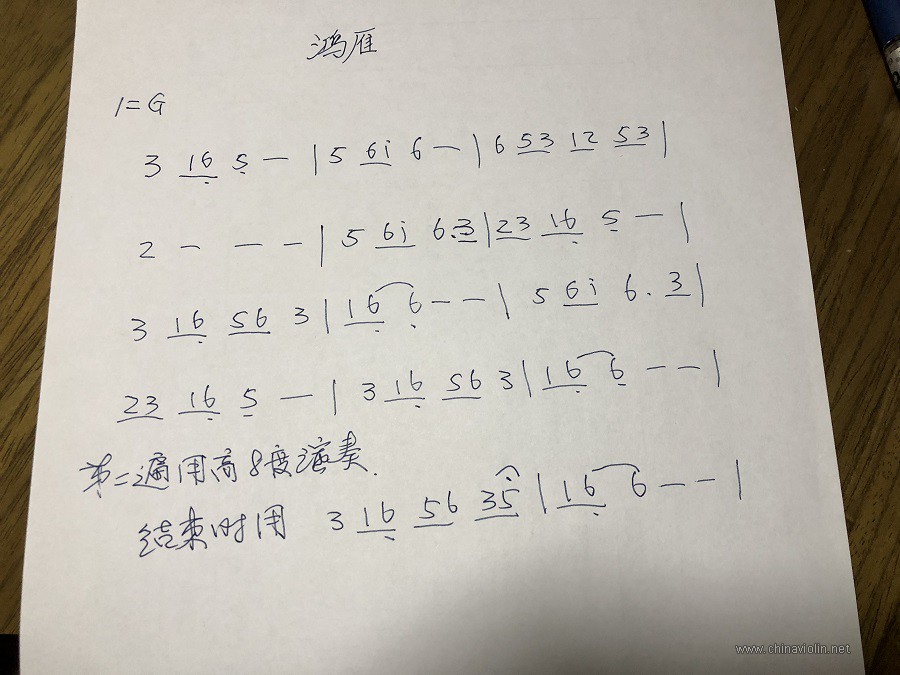 鸿雁
1=G
3 16 5 — | 5 6i 6 — | 6 53 12 53 |
2 — — — | 5 6i 6.3 | 23 16 5 — |
3 16 56 3 | 16 6 — — | 5 6i 6. 3 |
23 16 5 — | 3 16 56 3 | 16 6 — — |
第二遍用高8度演奏.
结束时用 3 16 56 35 | 16 6 — — |
www.chinaviolin.net